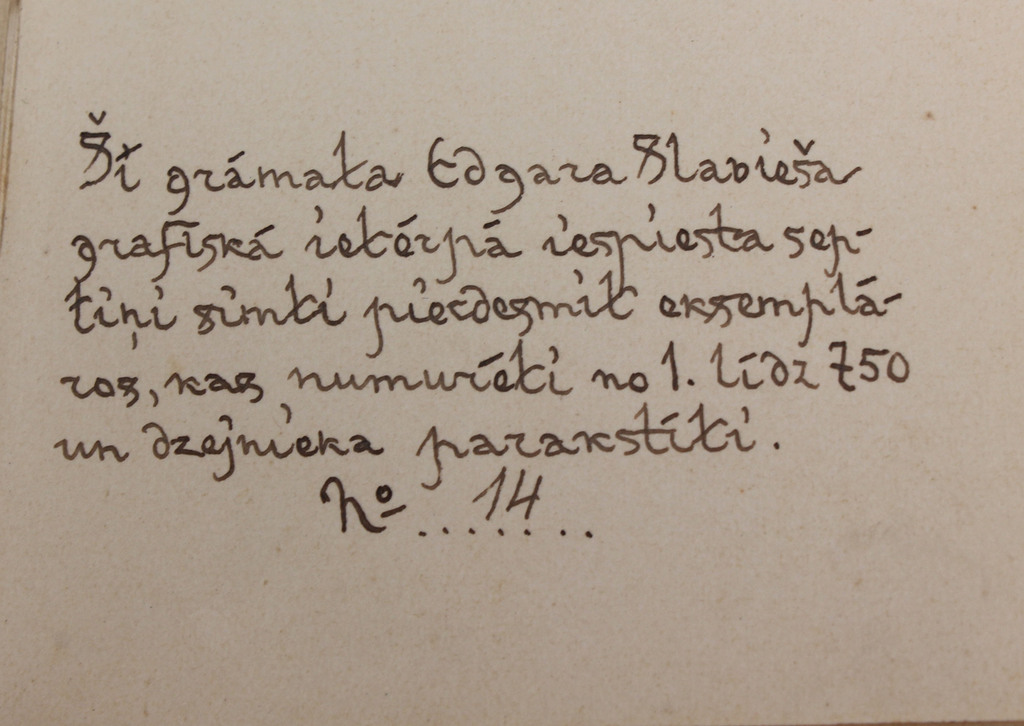 Šī grāmata Edgara Slavieša
grafiskā ietērpā iespiesta sep-
tiņi simti piecdesmit eksemplā-
ros, kas numurēti no 1. līdz 750
un dzejnieka parakstīti.
No 14